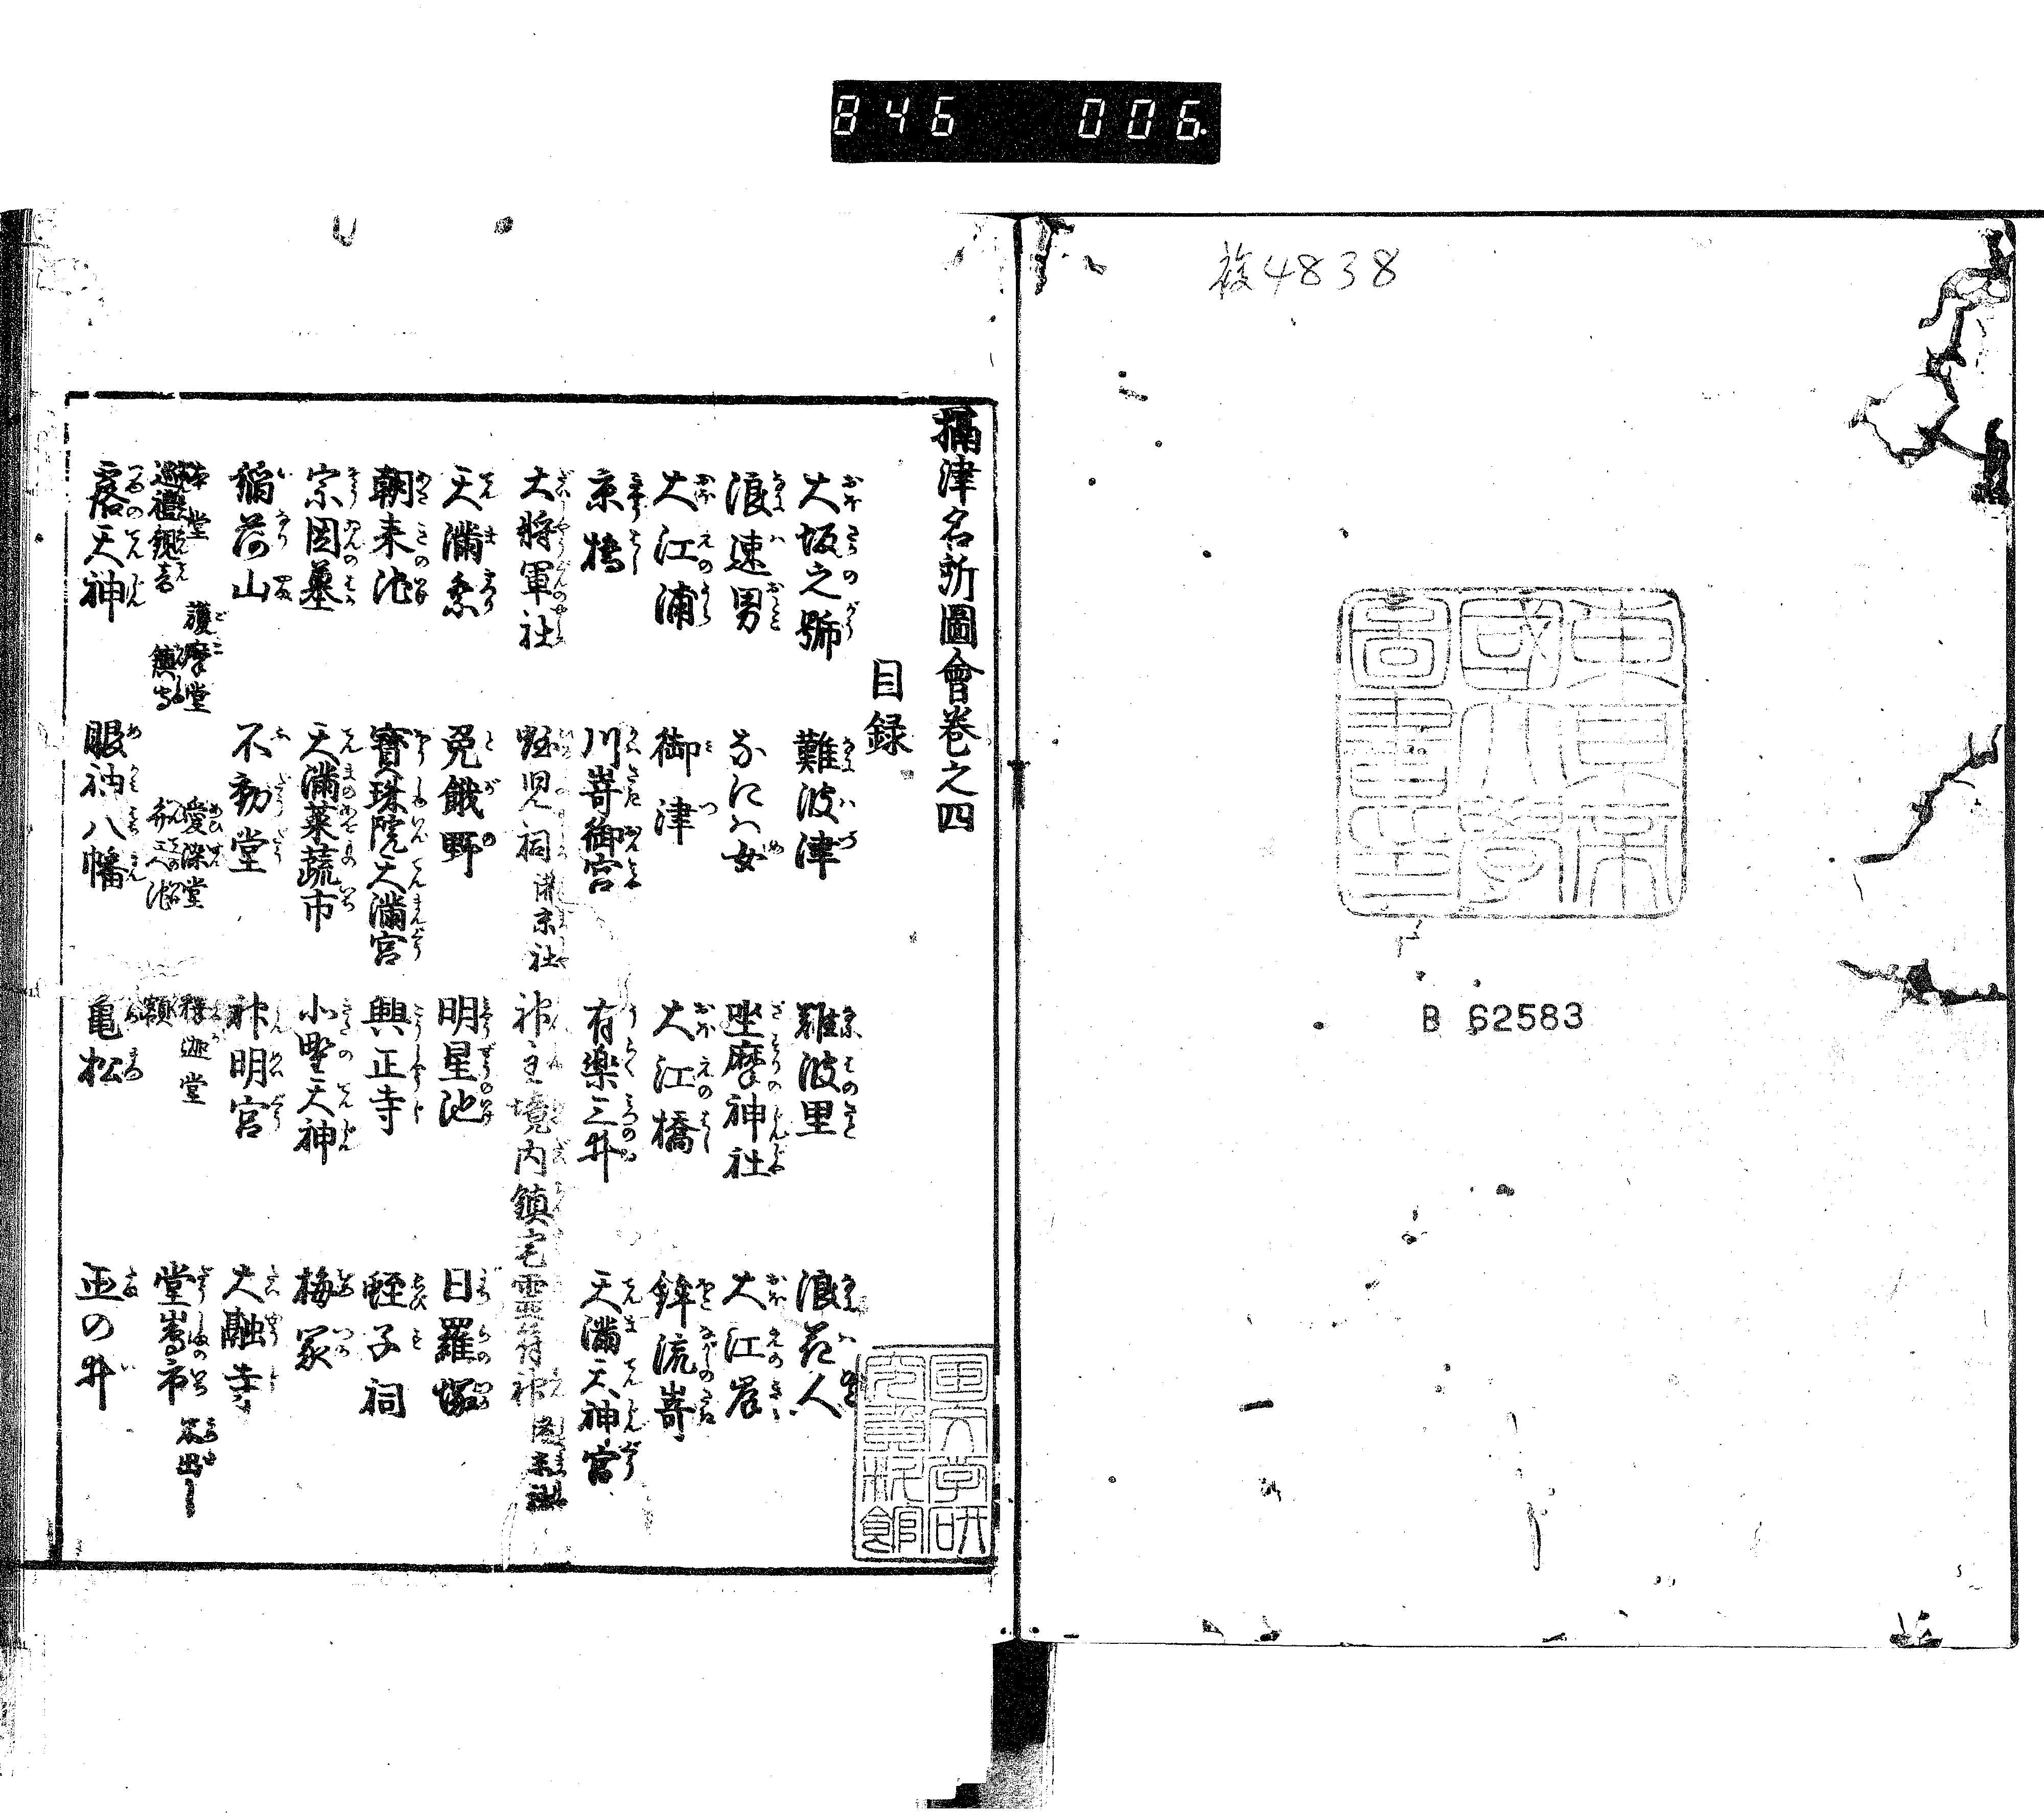 846 006.
複4838
東京帝
國大學
圖書印
B 62583
攝津名所圖會巻之四
目録
大坂之號 難波津 難波里 浪花人
浪速男 なには女 坐摩神社 大江岸
大江浦 御津 大江橋 鉾流嵜
京橋 川嵜御宮 有楽三井 天満天神宮
大将軍社 蛭児祠 神主境内鎮宅霊符神
天満祭 兎餓野 明星池 日羅塚
朝来池 寶珠院天満宮 興正寺 蛭子祠
宗因墓 天満菜蔬市 小野天神 梅冢
稲荷山 不動堂 神明宮 太融寺
本堂 護摩堂 愛染堂 釋迦堂
巡禮観音 鎮守 弁天池 額
堂嶌市
露天神 眼神八幡 亀松 正の井